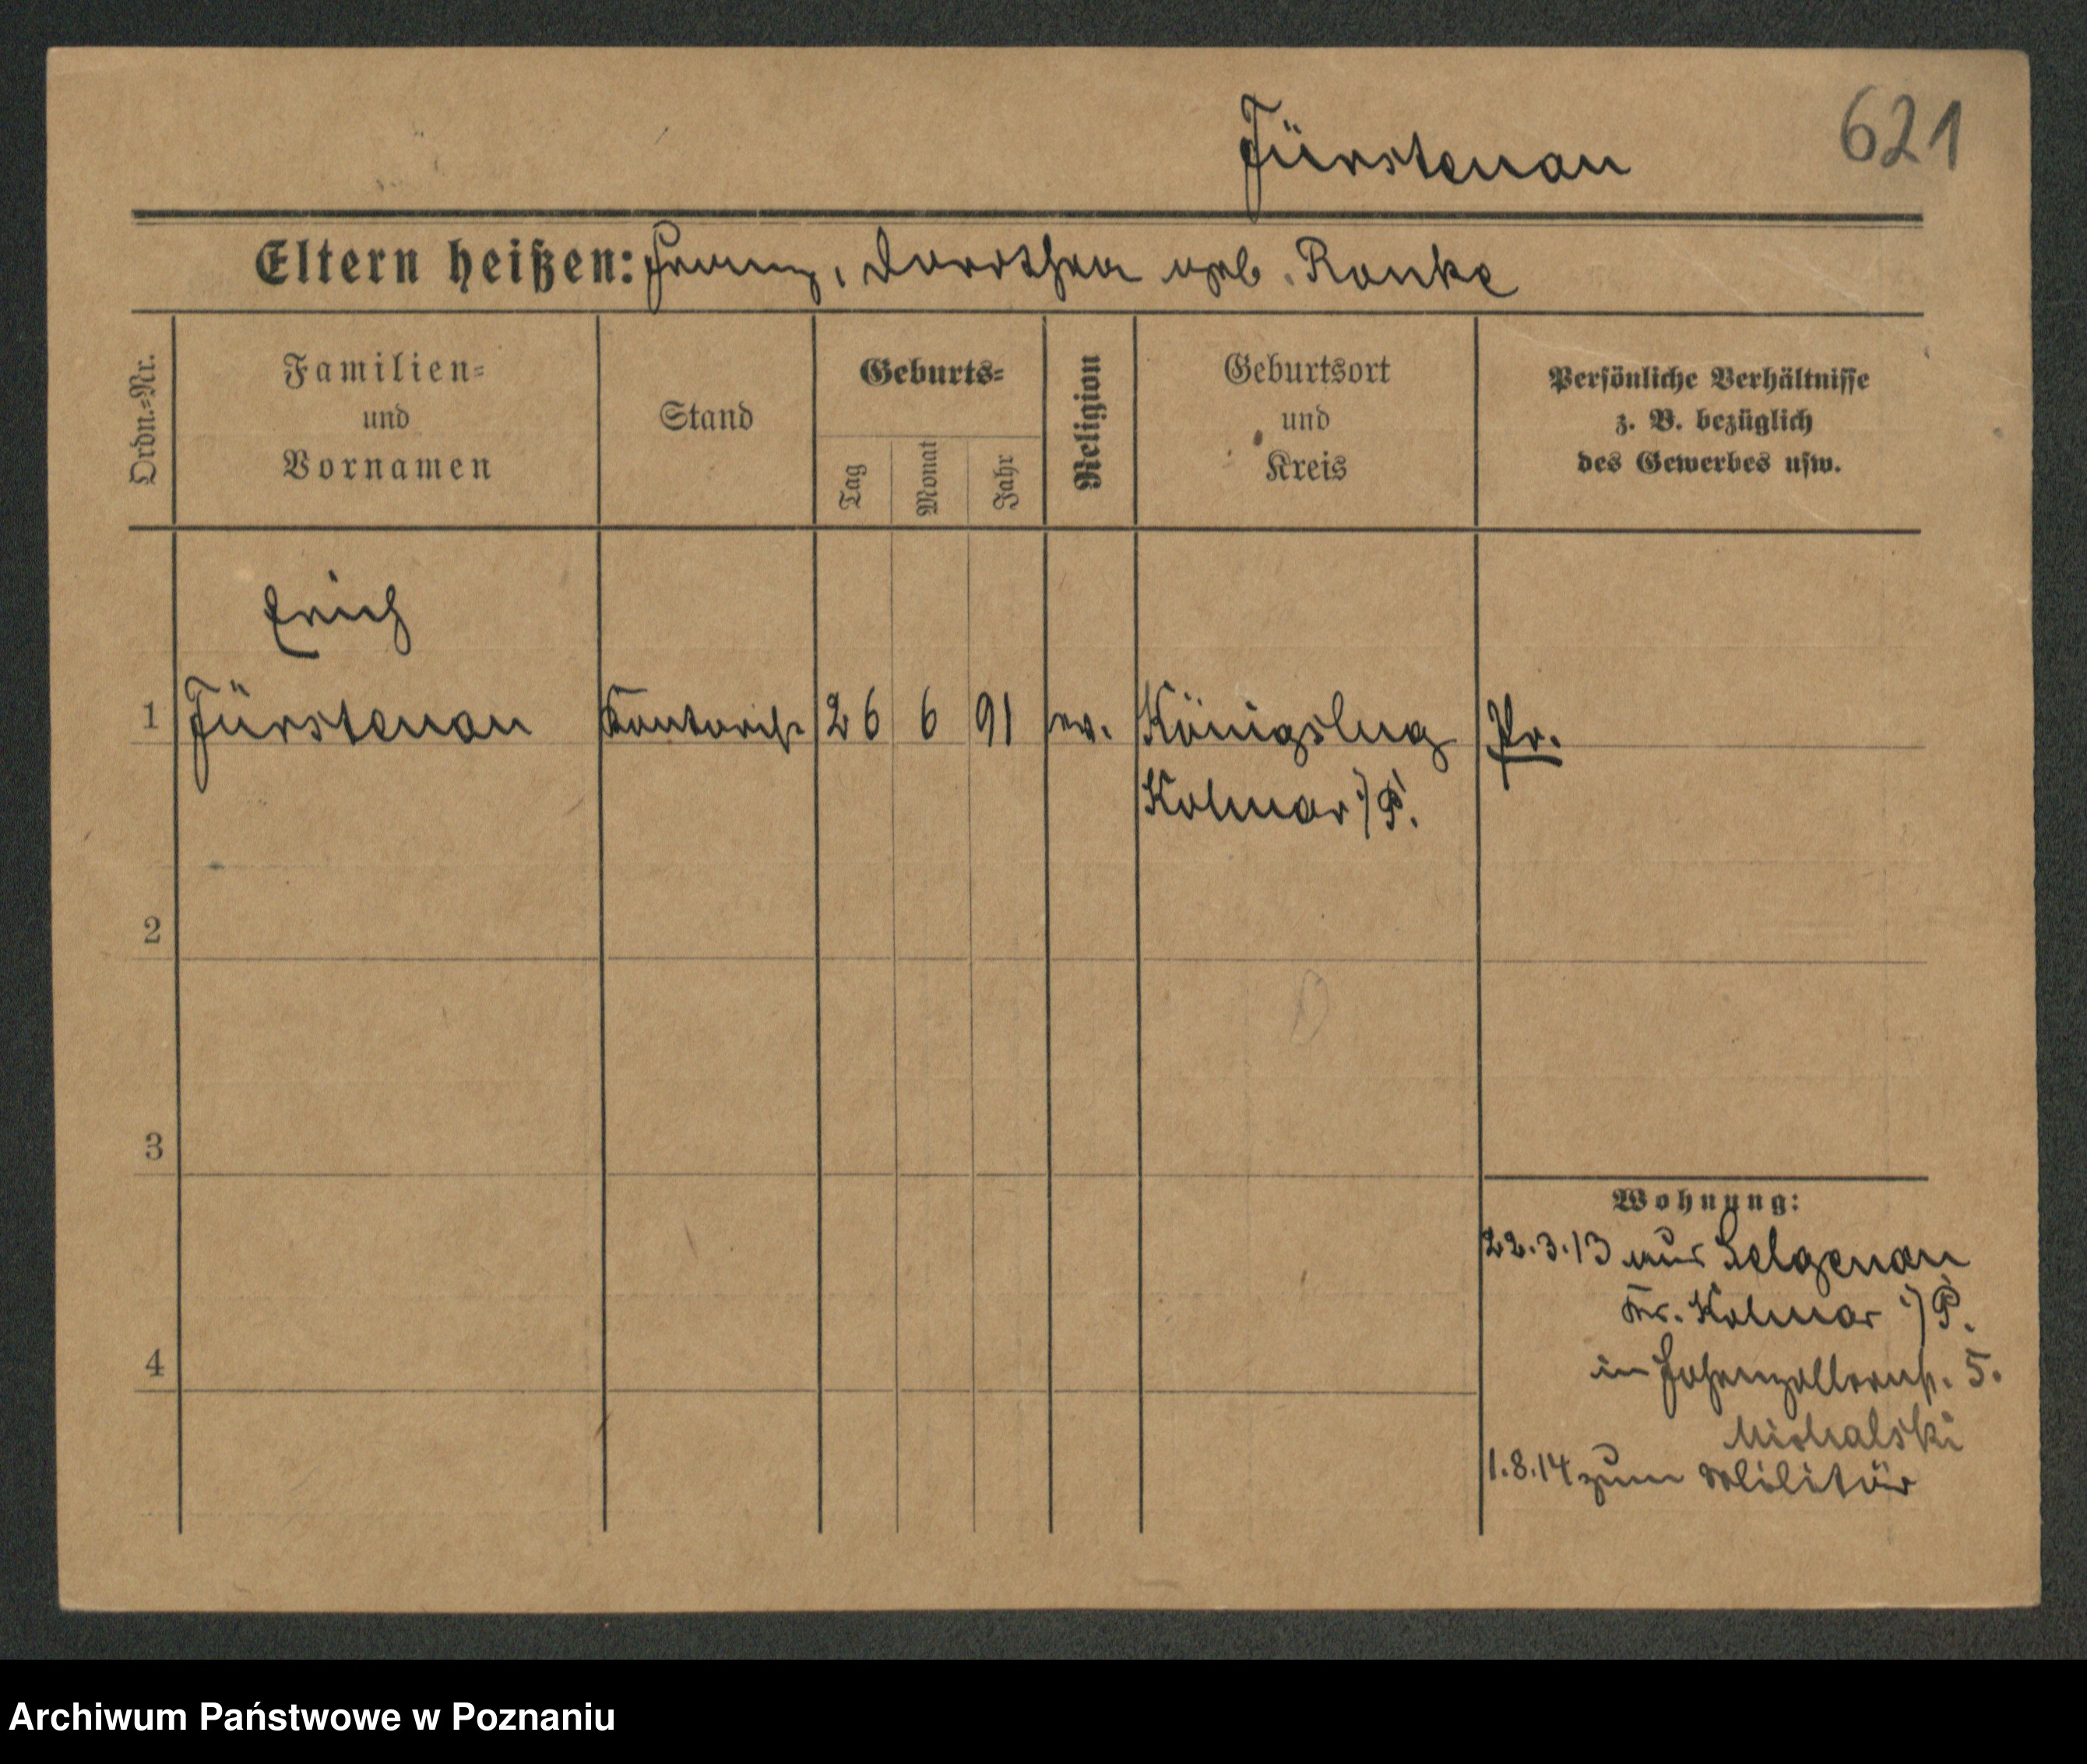 Fürstenau 621
Eltern heißen: Franz, Dorothea geb. Ranke
Ordn.=Nr.
Familien=
und
Vornamen
Stand
Geburts=
Tag
Monat
Jahr
Religion
Geburtsort
und
Kreis
Persönliche Verhältnisse
z. B. bezüglich
des Gewerbes usw.
Erich
1 Fürstenau Kontorist 26 6 91 ev. Königslug Pr.
Kolmar i/P.
2
3
4
Wohnung:
22.3.13 aus Selgenau
Kr. Kolmar i/P.
in Hohenzollernstr. 5.
Michalski
1.8.14 zum Militär
Archiwum Państwowe w Poznaniu